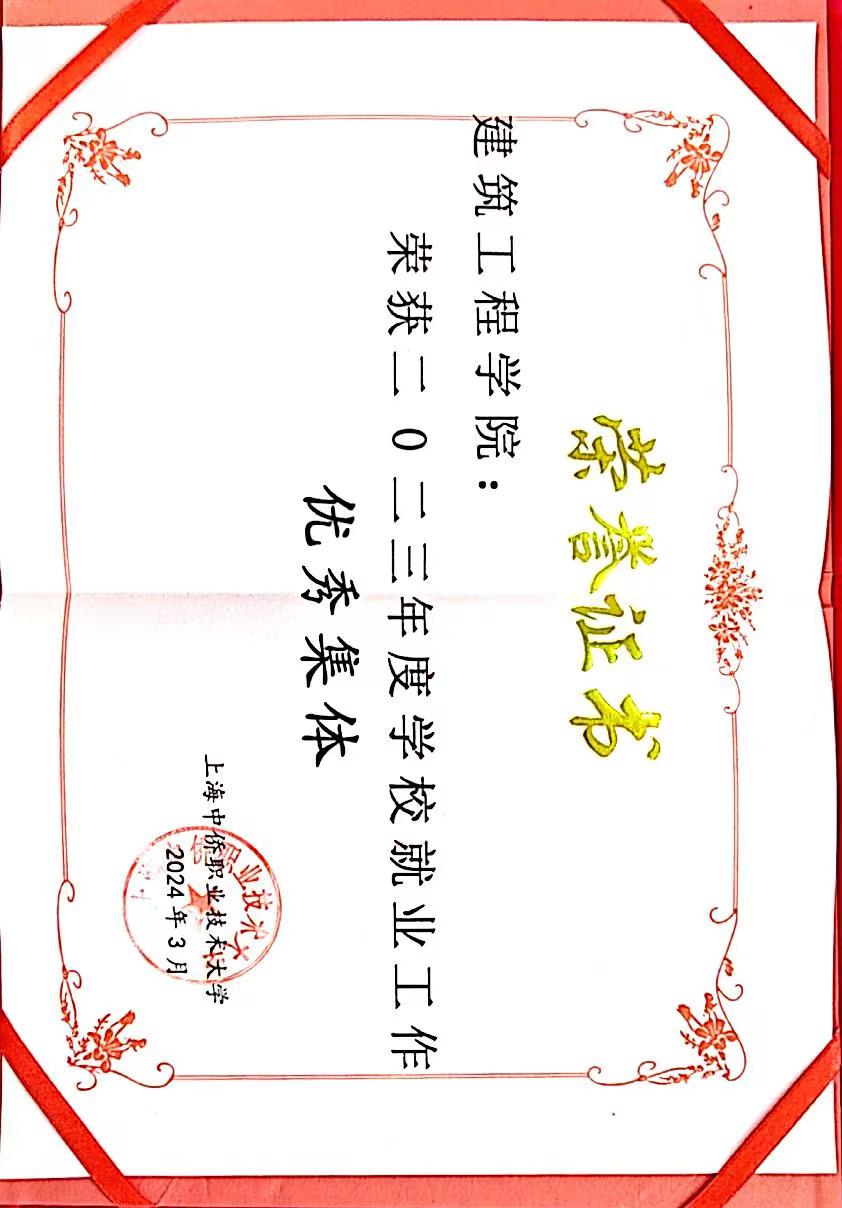 荣誉证书
建筑工程学院：
荣获二0二三年度学校就业工作
优秀集体
上海中侨职业技术大学
2024年3月